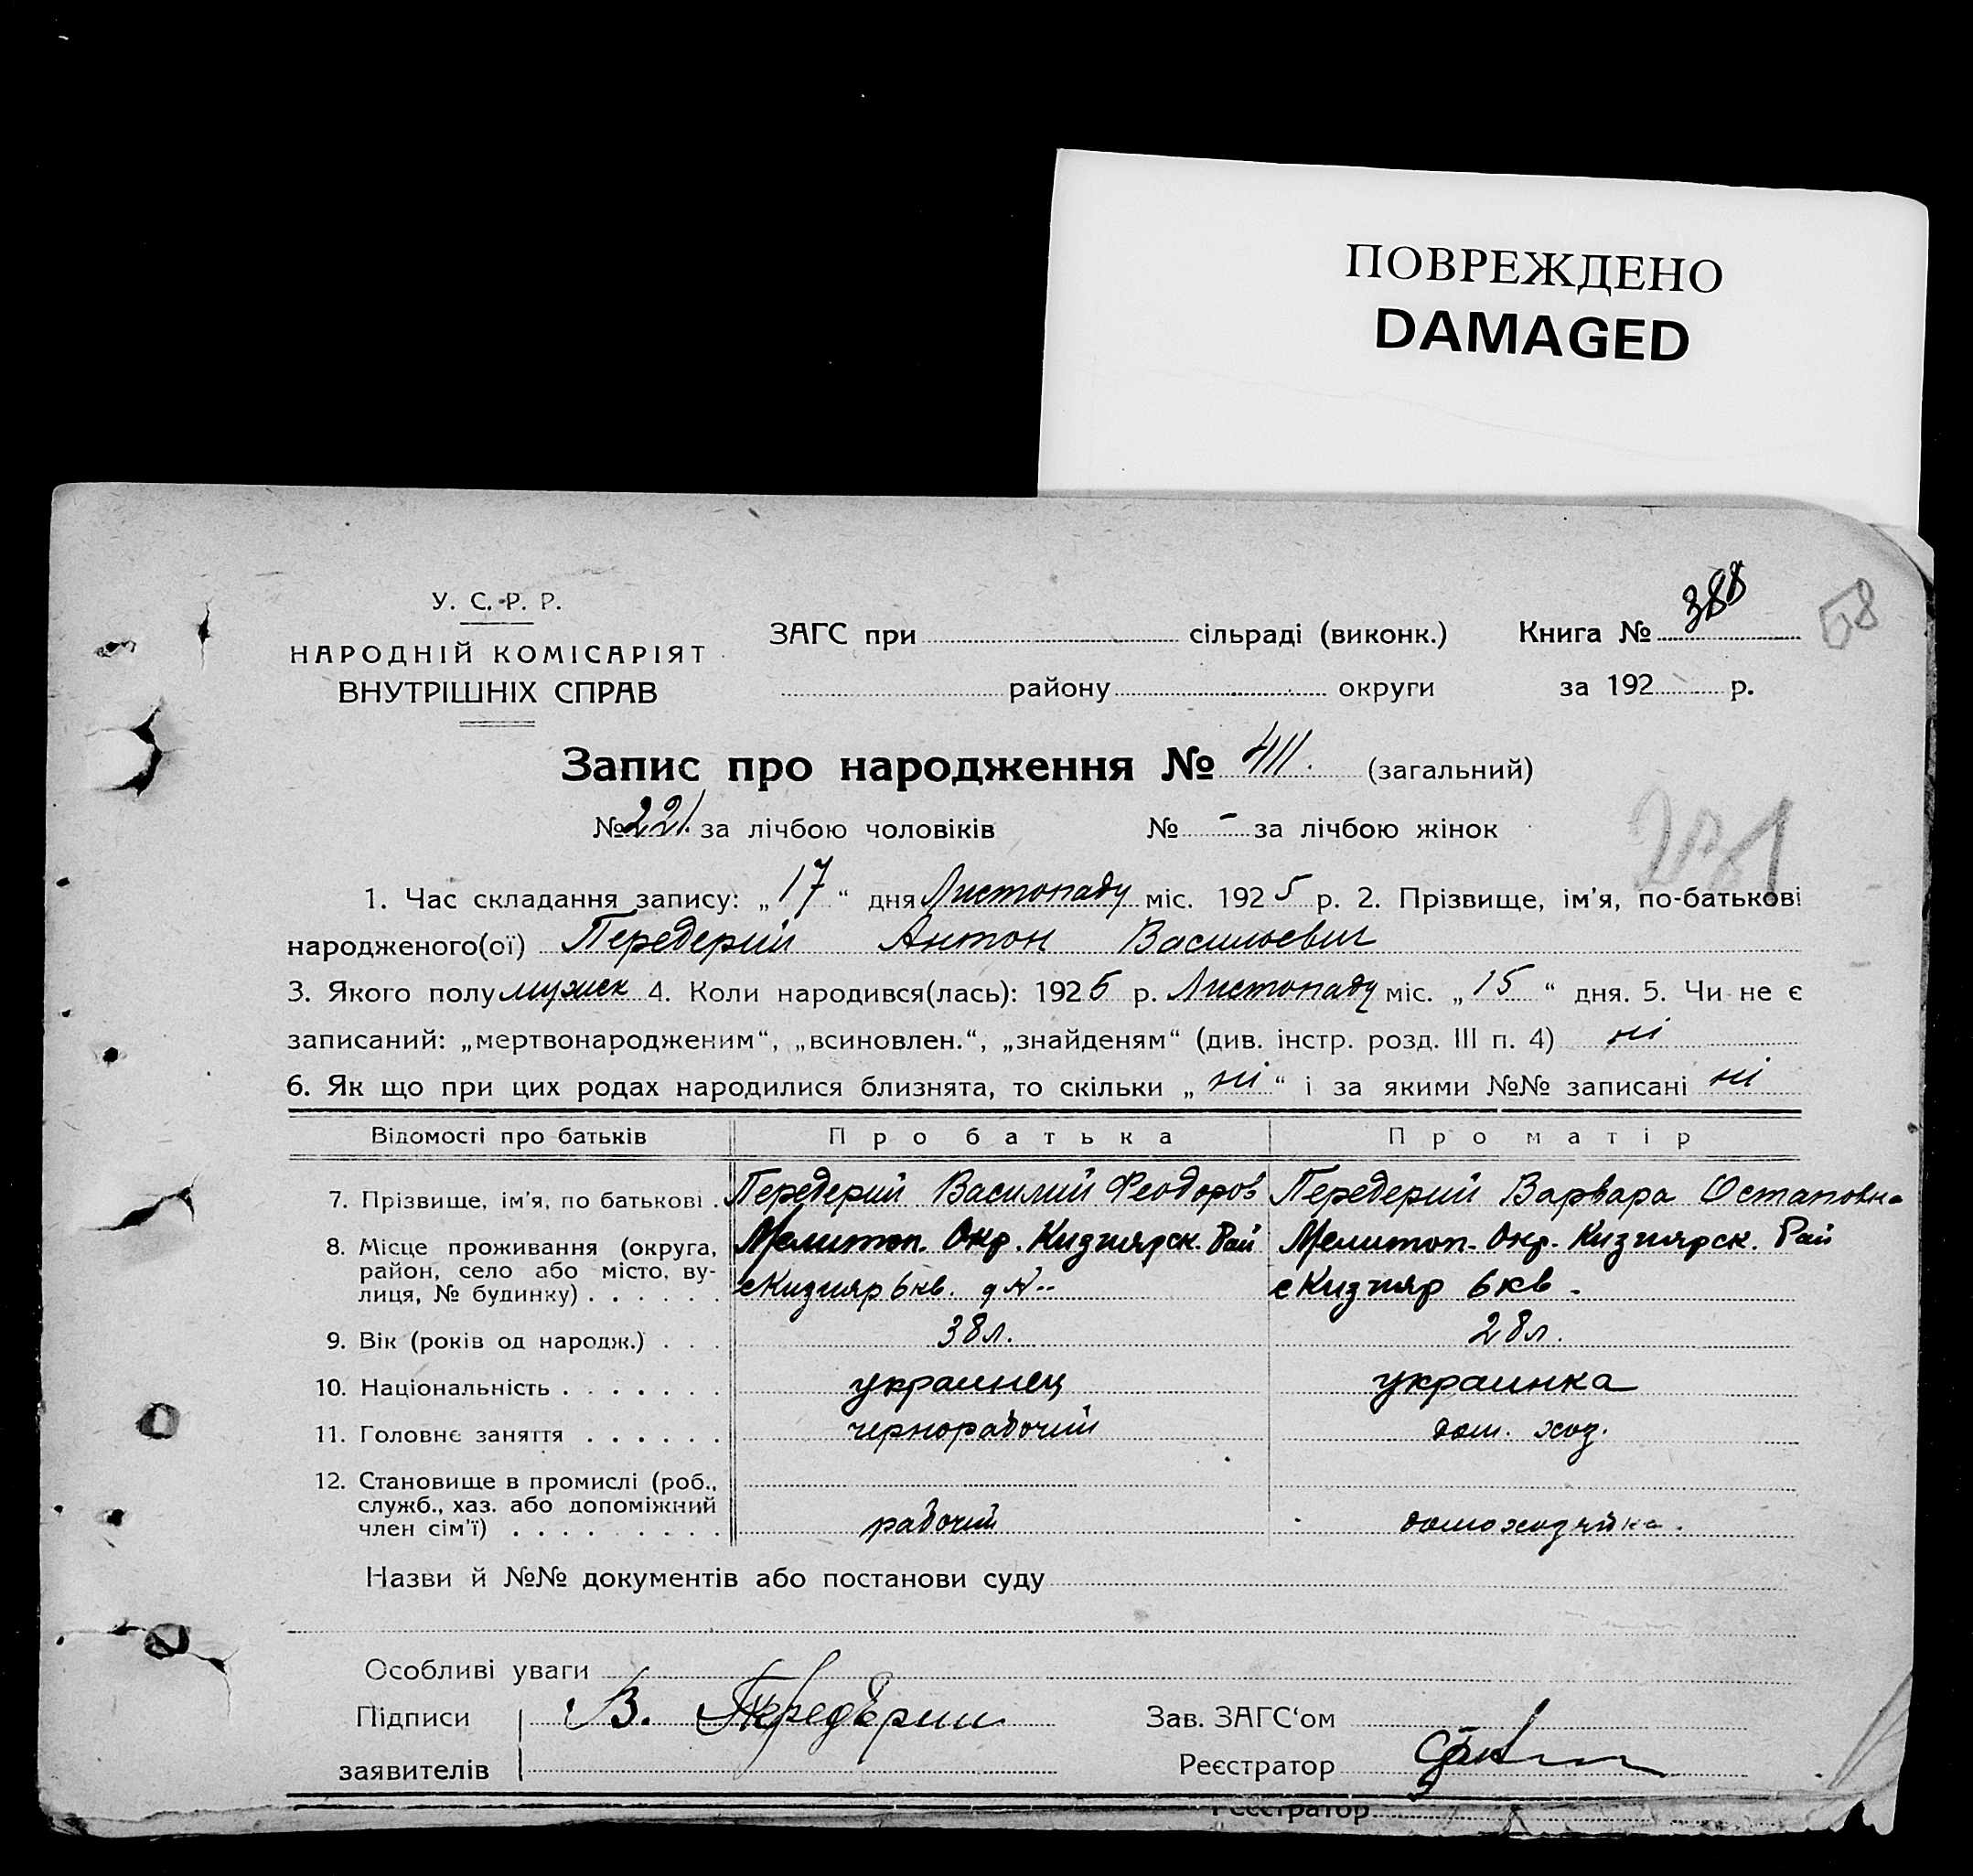 ПОВРЕЖДЕНО
DAMAGED
У. С. Р. Р.
НАРОДНІЙ КОМІСАРІЯТ
ВНУТРІШНІХ СПРАВ
ЗАГС при сільраді (виконк.) Книга № 388
58
району округи за 192 р.
Запис про народження № 411. (загальний)
№ 221. за лічбою чоловіків № - за лічбою жінок
1. Час складання запису: „17“ дня Листопаду міс. 1925 р. 2. Прізвище, ім'я, по-батькові
народженого(ої) Передерий Антон Васильевич
3. Якого полу мужск 4. Коли народився(лась): 1925 р. Листопаду міс. „15“ дня. 5. Чи не є
записаний: „мертвонародженим“, „всиновлен.“, „знайденям“ (див. інстр. розд. III п. 4) ні
6. Як що при цих родах народилися близнята, то скільки „ні“ і за якими №№ записані ні
Відомості про батьків Про батька Про матір
7. Прізвище, ім'я, по батькові . Передерий Василий Феодоров Передерий Варвара Остаповна
8. Місце проживання (округа, Мелитоп. Окр. Кизиярск. Рай Мелитоп. Окр. Кизиярск. Рай
район, село або місто, ву-
лиця, № будинку) . . . . . . с Кизияр 6 кв. д № -- с Кизияр 6 кв -
9. Вік (років од народж.) . . . 38 л. 28 л.
10. Національність . . . . . . . украинец украинка
11. Головнє заняття . . . . . . чернорабочий дом. хоз.
12. Становище в промислі (роб.,
служб., хаз. або допоміжний
член сім'ї) . . . . . . . . . рабочий домохозяйка.
Назви й №№ документів або постанови суду
Особливі уваги
Підписи В. Передерий Зав. ЗАГС‘ом
заявителів Реєстратор
Реєстратор